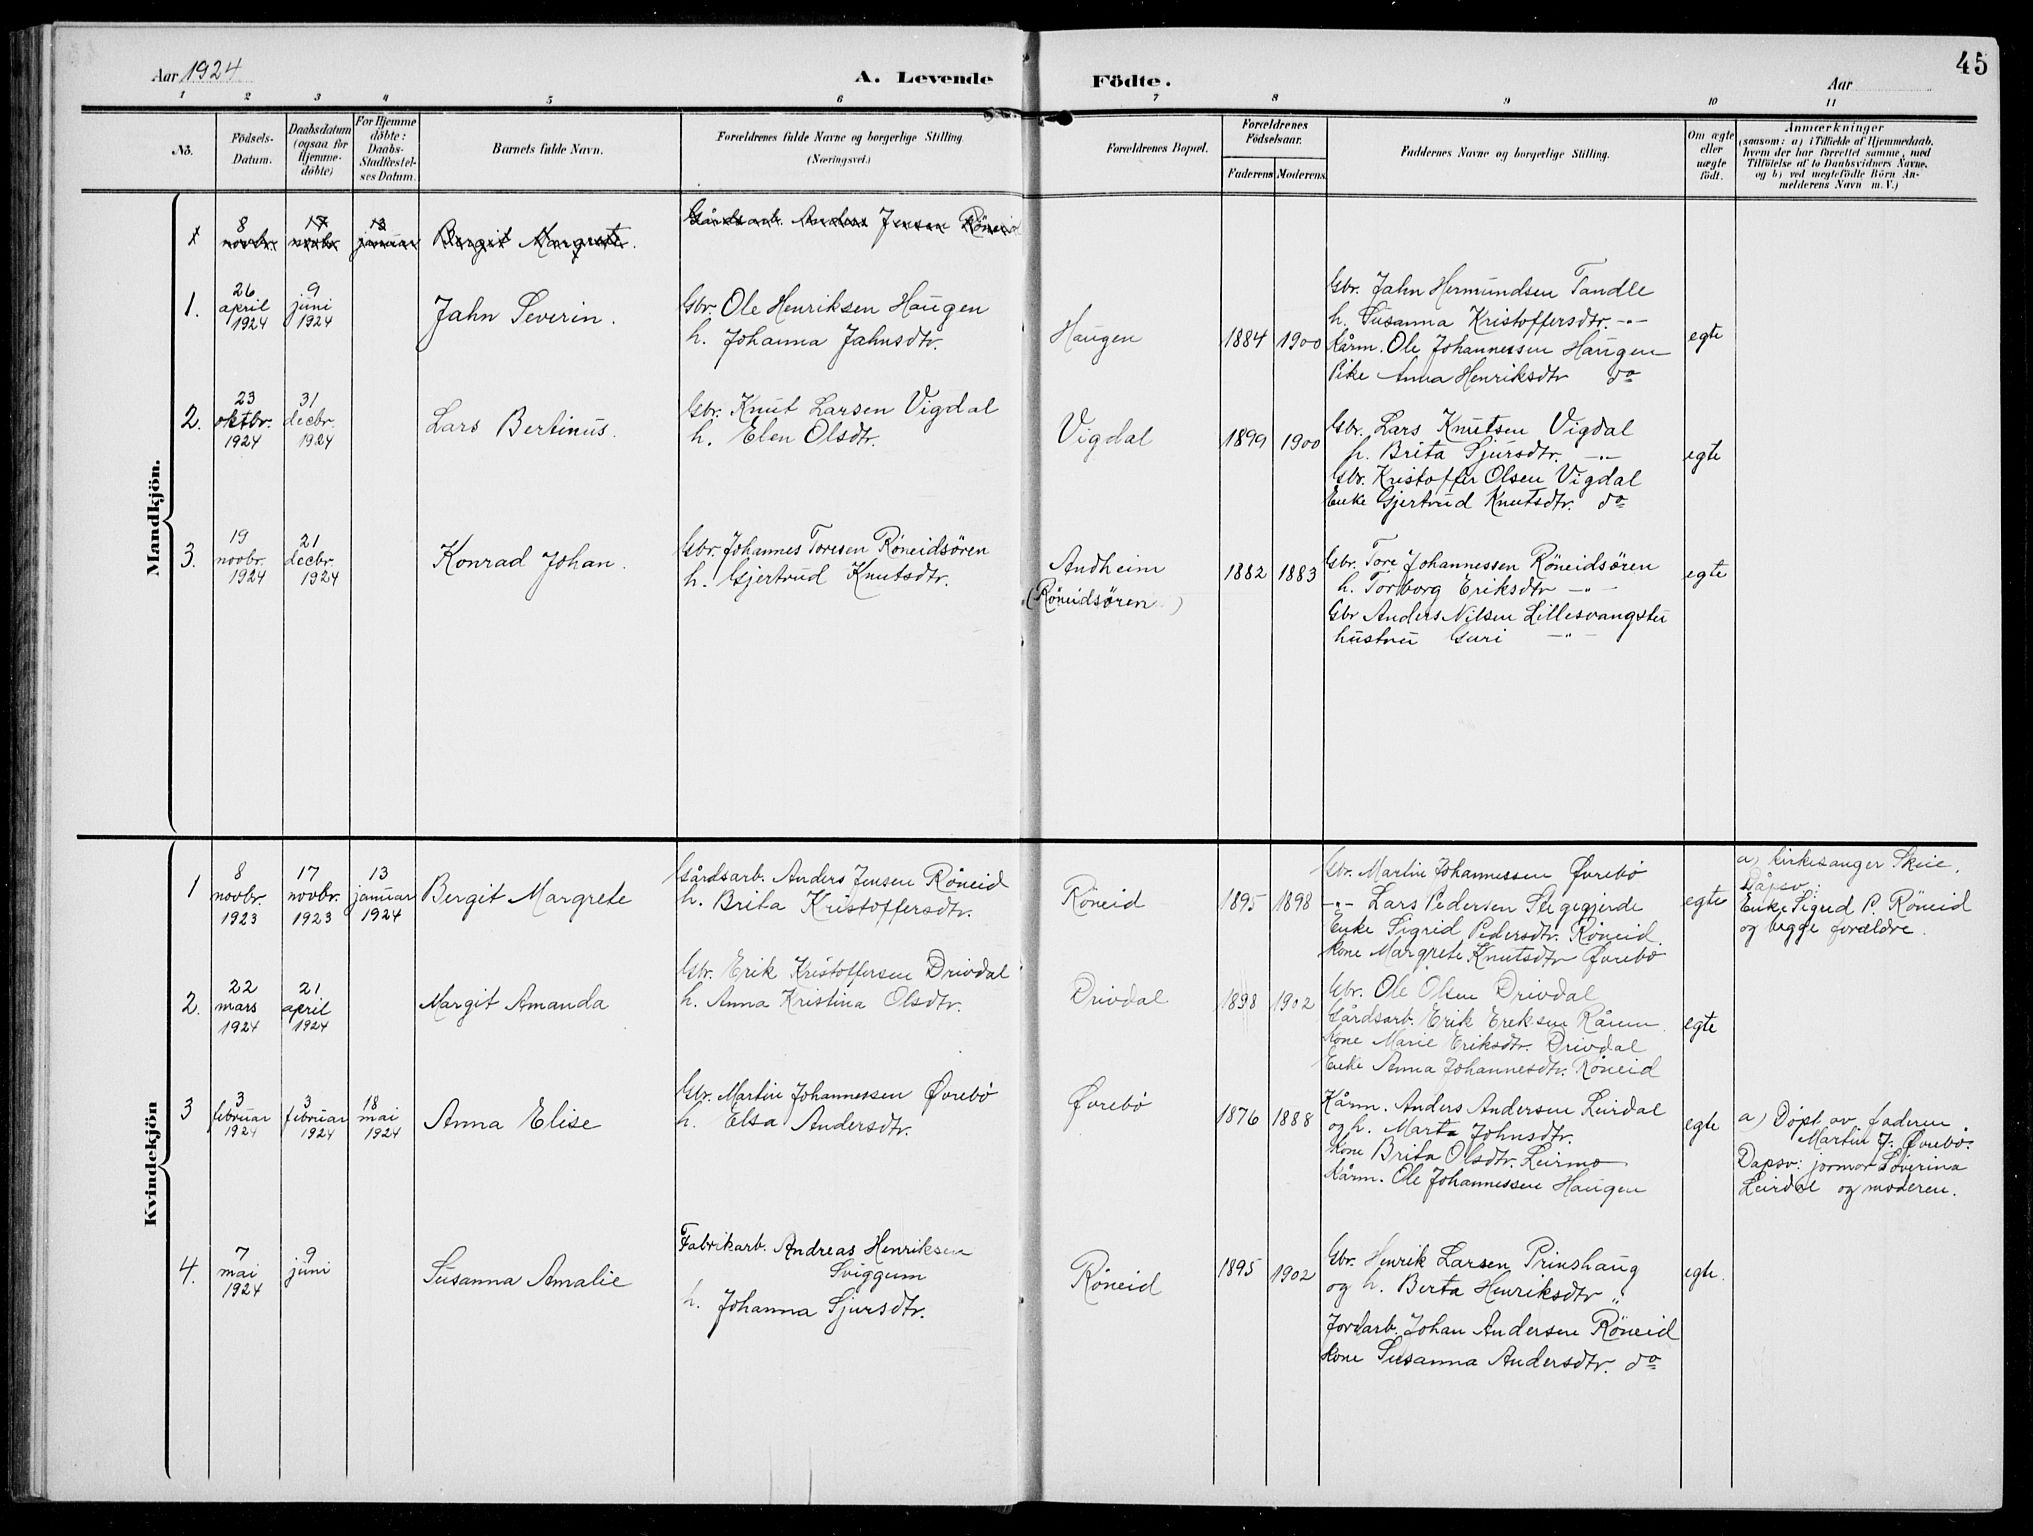 45
Aar 1924
A. Levende
Födte.
Aar
1 2 3 4 5 6 7 8 9 10 11
No.
Födsels-
Datum.
Daabsdatum
(ogsaa for
Hjemme-
döbte)
For Hjemme
döbte:
Daabs-
Stadfæstel-
ses Datum.
Barnets fulde Navn.
Forældrenes fulde Navne og borgerlige Stilling
(Næringsvei.)
Forældrenes Bopæl.
Forældrenes
Födselsaar.
Faderens
Moderens
Faddernes Navne og borgerlige Stilling.
Om ægte
eller
uægte
födt.
Anmærkninger
(saasom: a) i Tilfælde af Hjemmedaab,
hvem der har forrettet samme, med
Tilföielse af to Daabsvidners Navne,
og b) ved uægtefödte Börn An-
melderens Navn m. V.)
Mandkjön.
1
8
novbr.
17
novbr.
13
januar
Bergit Margrete.
Gårdsarb. Anders Jensen Röneid
1.
26
april
1924
9
juni
1924
Jahn Severin.
Gbr. Ole Henriksen Haugen
h. Johanna Jahnsdtr.
Haugen
1884
1900
Gbr. Jahn Hermundsen Tandle
h. Susanna Kristoffersdtr. -"-
Kårm. Ole Johannessen Haugen
Pike Anna Henriksdtr do
egte
2.
23
oktbr.
1924
31
decbr.
1924
Lars Bertinus.
Gbr. Knut Larsen Vigdal
h. Elen Olsdtr.
Vigdal
1899
1900
Gbr. Lars Knutsen Vigdal
h. Brita Sjursdtr. -"-
Gbr. Kristoffer Olsen Vigdal
Enke Gjertrud Knutsdtr. do
egte
3.
19
novbr.
1924
21
decbr.
1924
Konrad Johan.
Gbr. Johannes Toresen Röneidsören
h. Gjertrud Knutsdtr.
Andheim
(Röneidsören)
1882
1883
Gbr. Tore Johannessen Röneidsören
h. Torborg Eriksdtr -"-
Gbr Anders Nilsen Lillesvangstu
hustru Guri -"-
egte
Kvindekjön
1
8
novbr.
1923
17
novbr.
1923
13
januar
1924
Bergit Margrete
Gårdsarb. Anders Jensen Röneid
h. Brita Kristoffersdtr.
Röneid
1895
1898
Gbr. Martin Johannessen Øvrebö
-"- Lars Pedersen Stegegjerde
Enke Sigrid Pedersdtr. Röneid.
Kone Margrete Knutsdtr Øvrebö
egte
a) Kirkesanger Skeie.
Dåpsv:
Enke Sigrid P. Röneid
og begge forældre.
2.
22
mars
1924
21
april
1924
Margit Amanda
Gbr. Erik Kristoffersen Drivdal
h. Anna Kristina Olsdtr.
Drivdal
1898
1902
Gbr. Ole Olsen Drivdal
Gårdsarb. Erik Eriksen Kårm
Kone Marie Eriksdtr. Drivdal
Enke Anna Johannesdtr. Röneid
egte
3
3
februar
1924
3
februar
1924
18
mai
1924
Anna Elise
Gbr. Martin Johannessen Øvrebö
h. Elsa Andersdtr.
Øvrebö
1876
1888
Kårm. Anders Andersen Leirdal
og h. Marta Johnsdtr.
Kone Brita Olsdtr. Leirmo
Kårm. Ole Johannessen Haugen
egte
a) Döpt av faderen
Martin J. Øvrebö.
Dapsv: jormor Severina
Leirdal og moderen.
4.
7
mai
1924
9
juni
Susanna Amalie
Fabrikarb. Andreas Henriksen
Sviggum
h. Johanna Sjursdtr.
Röneid
1895
1902
Gbr. Henrik Larsen Prinshaug
og h. Berta Henriksdtr "
Jordarb. Johan Andersen Röneid
Kone Susanna Andersdtr. do
egte.